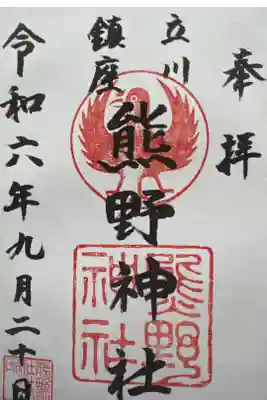 奉拝
立川
鎮座
熊野神社
熊野神社
令和六年九月二十日
熊野神社